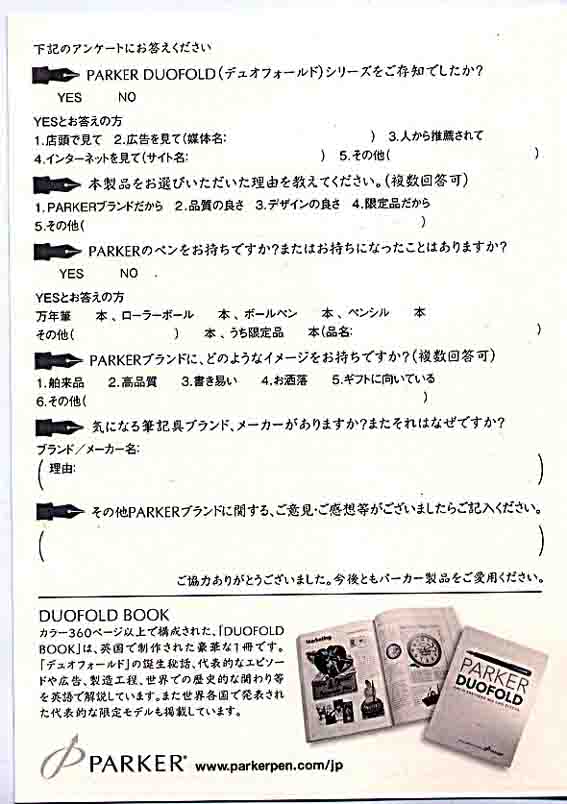 下記のアンケートにお答えください
PARKER DUOFOLD(デュオフォールド)シリーズをご存知でしたか?
YES NO
YESとお答えの方
1.店頭で見て 2.広告を見て(媒体名: ) 3.人から推薦されて
4.インターネットを見て(サイト名: ) 5.その他( )
本製品をお選びいただいた理由を教えてください。(複数回答可)
1.PARKERブランドだから 2.品質の良さ 3.デザインの良さ 4.限定品だから
5.その他( )
PARKERのペンをお持ちですか?またはお持ちになったことはありますか?
YES NO
YESとお答えの方
万年筆 本、ローラーボール 本、ボールペン 本、ペンシル 本
その他( ) 本、うち限定品 本(品名: )
PARKERブランドに、どのようなイメージをお持ちですか?(複数回答可)
1.舶来品 2.高品質 3.書き易い 4.お洒落 5.ギフトに向いている
6.その他( )
気になる筆記具ブランド、メーカーがありますか?またそれはなぜですか?
ブランド/メーカー名:
(理由: )
その他PARKERブランドに関する、ご意見・ご感想等がございましたらご記入ください。
( )
ご協力ありがとうございました。今後ともパーカー製品をご愛用ください。
DUOFOLD BOOK
カラー360ページ以上で構成された、「DUOFOLD
BOOK」は、英国で制作された豪華な1冊です。
「デュオフォールド」の誕生秘話、代表的なエピソー
ドや広告、製造工程、世界での歴史的な関わり等
を英語で解説しています。また世界各国で発表され
た代表的な限定モデルも掲載しています。
Marketing
PARKER
DUOFOLD
PARKER
www.parkerpen.com/jp